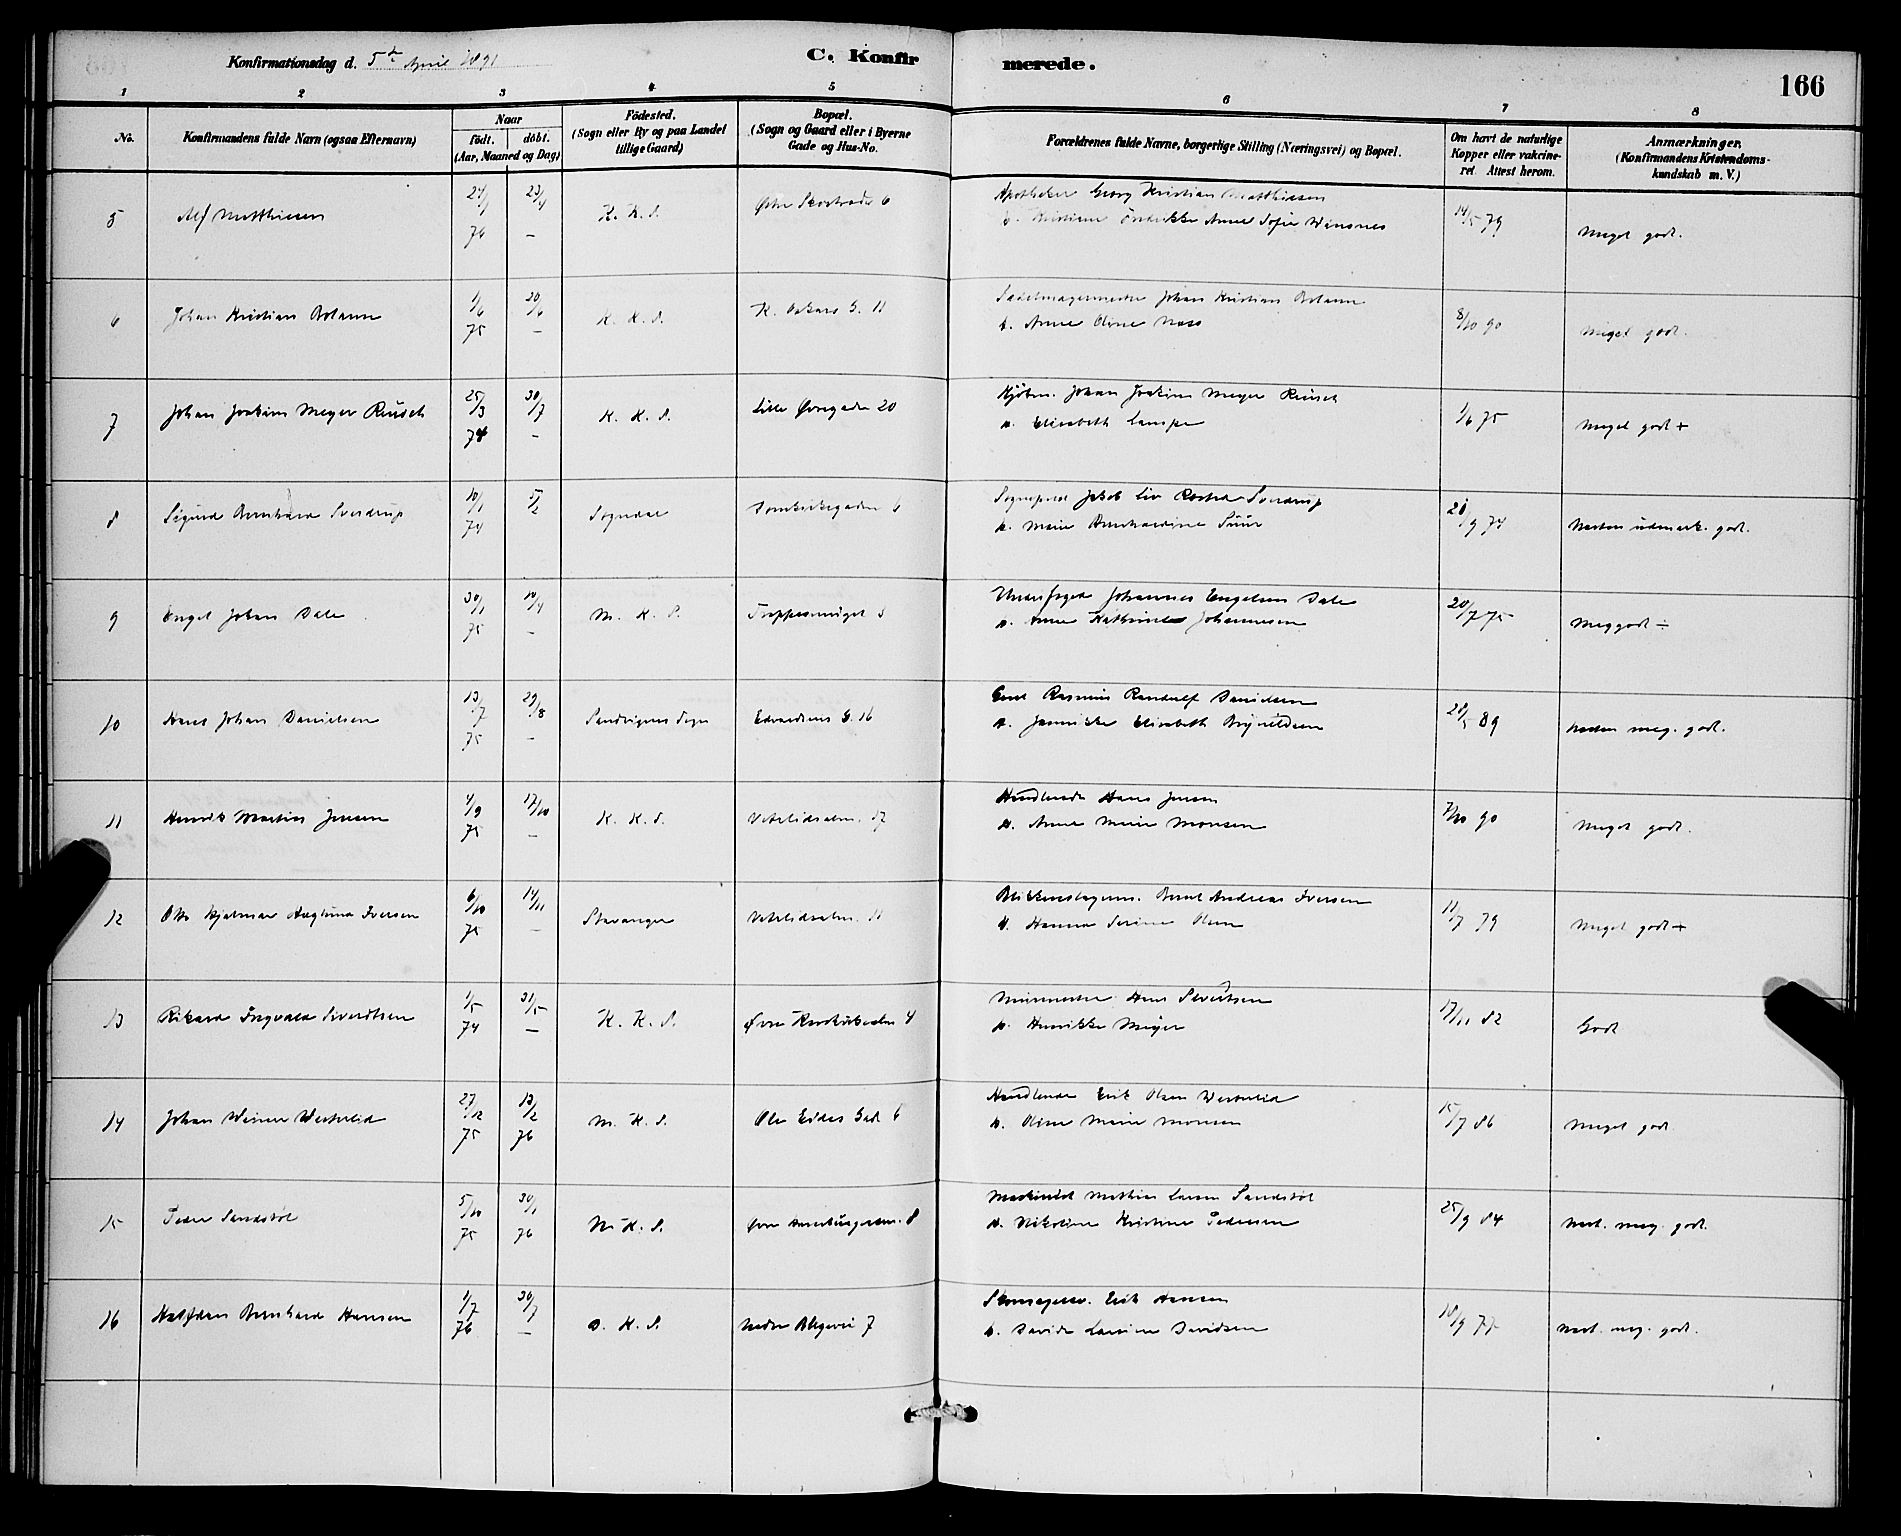 Konfirmationsdag d. 5te April 1891
C. Konfirmerede.
166
1 2 3 4 5 6 7 8
No.
Konfirmandens fulde Navn (ogsaa Efternavn)
Naar
født. døbt.
(Aar, Maaned og Dag)
Fødested.
(Sogn eller By og paa Landet
tillige Gaard)
Bopæl.
(Sogn og Gaard eller i Byerne
Gade og Hus-No.
Forældrenes fulde Navne, borgerlige Stilling (Næringsvei) og Bopæl.
Om havt de naturlige
Kopper eller vakcine-
ret. Attest herom.
Anmærkninger.
(Konfirmandens Kristendoms-
kundskab m. V.)
5 Alf Matthiessen 76 – K. K. S. 6 Apotheker Georg Kristian Matthiessen
Anne Sofie Wiesnes 14/5 79 Meget godt.
6 Johan Kristian 1/6 75 20/6 – K. K. S. 11 Sadelmagermester Johan Kristian
Anne Oline 8/10 90 Meget godt.
7 Johan Joakim Meyer Reusch 25/3 74 30/7 – K. K. S. Lille Øvregaden 20 Kjøbm. Johan Joakim Meyer Reusch
Elisabeth 1/6 75 Meget godt +
8 Sigurd Bernhard Sverdrup 10/1 74 5/2 Sogndal Domkirkegaden 6 Sogneprest Jakob Liv Sverdrup
Marie Bernhardine 9 74 Næsten udmærk. godt.
9 Engel Johan Dale 30/1 75 10/4 – M. K. S. Johannes Engelsen Dale
Anne Kathrine Johannesen 20/7 75 Meg godt ÷
10 Hans Johan Danielsen 13/7 75 29/8 – Sandvigens Sogn Edvardsens G. 16 Rasmus Randulf Danielsen
Jannikke Elisabeth Brynildsen 28/5 89 Næsten meg. godt.
11 Henrik Martin Jensen 4/9 75 17/10 – K. K. S. Vetrlidsalm. 17 Handlende Hans Jensen
Anne Marie Monsen 7/10 90 Meget godt.
12 Otto Hjalmar Iversen 6/10 75 14/11 – Stavanger Vetrlidsalm. 11 Blikkenslagerm. Bernt Andreas Iversen
Hanna Serine Olsen 11/7 79 Meget godt +
13 Rikard Ingvald Sivertsen 1/5 74 31/5 – K. K. S. Øvre Korskirkealm 4 Murmester Hans Sivertsen
Henrikke Meyer 17/11 82 Godt
14 Johan Werner Westrelid 27/12 75 13/2 76 M. K. S. Ole Eides Gade 6 Handlende Erik Olsen Westrelid
Oline Marie Monsen 15/7 86 Meget godt
15 Peder Sandstøl 5/10 75 30/1 76 N. K. S. 8 Maskinist Mathias Larsen Sandstøl
Nikoline Kristine Pedersen 25/9 84 Næst. meg. godt.
16 Halfdan Bernhard Hansen 1/7 76 30/7 – D. K. S. Nedre Blegevei 7 Skomagersv. Erik Hansen
Davida Larsine Davidsen 18/9 77 Næst. meg. godt.